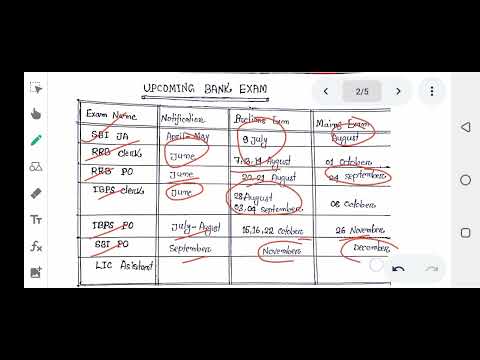 UPCOMING BANK EXAM
2/5
Exam Name Notification Prelims Exam Mains Exam
SBI JA April-May 9 July August
RRB Clerk June 7,13,19 August 01 October
RRB PO June 21 August 24 September
IBPS Clerk June 28 August
03,04 September 08 October
IBPS PO July-August 15,16,22 October 26 November
SBI PO September November December
LIC Asistant